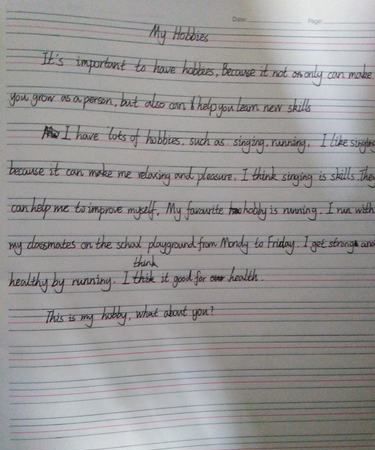 Date: Page:
My Hobbies
It's important to have hobbies, Because it not only can make
you grow as a person, but also can help you learn new skills
I have lots of hobbies, such as singing, running. I like singing
because it can make me relaxing and pleasure. I think singing is skills. They
can help me to improve myself. My favourite hobby is running. I run with
my classmates on the school playground from Mondy to Friday. I get strong and
think
healthy by running. I it good for health.
This is my hobby, what about you?